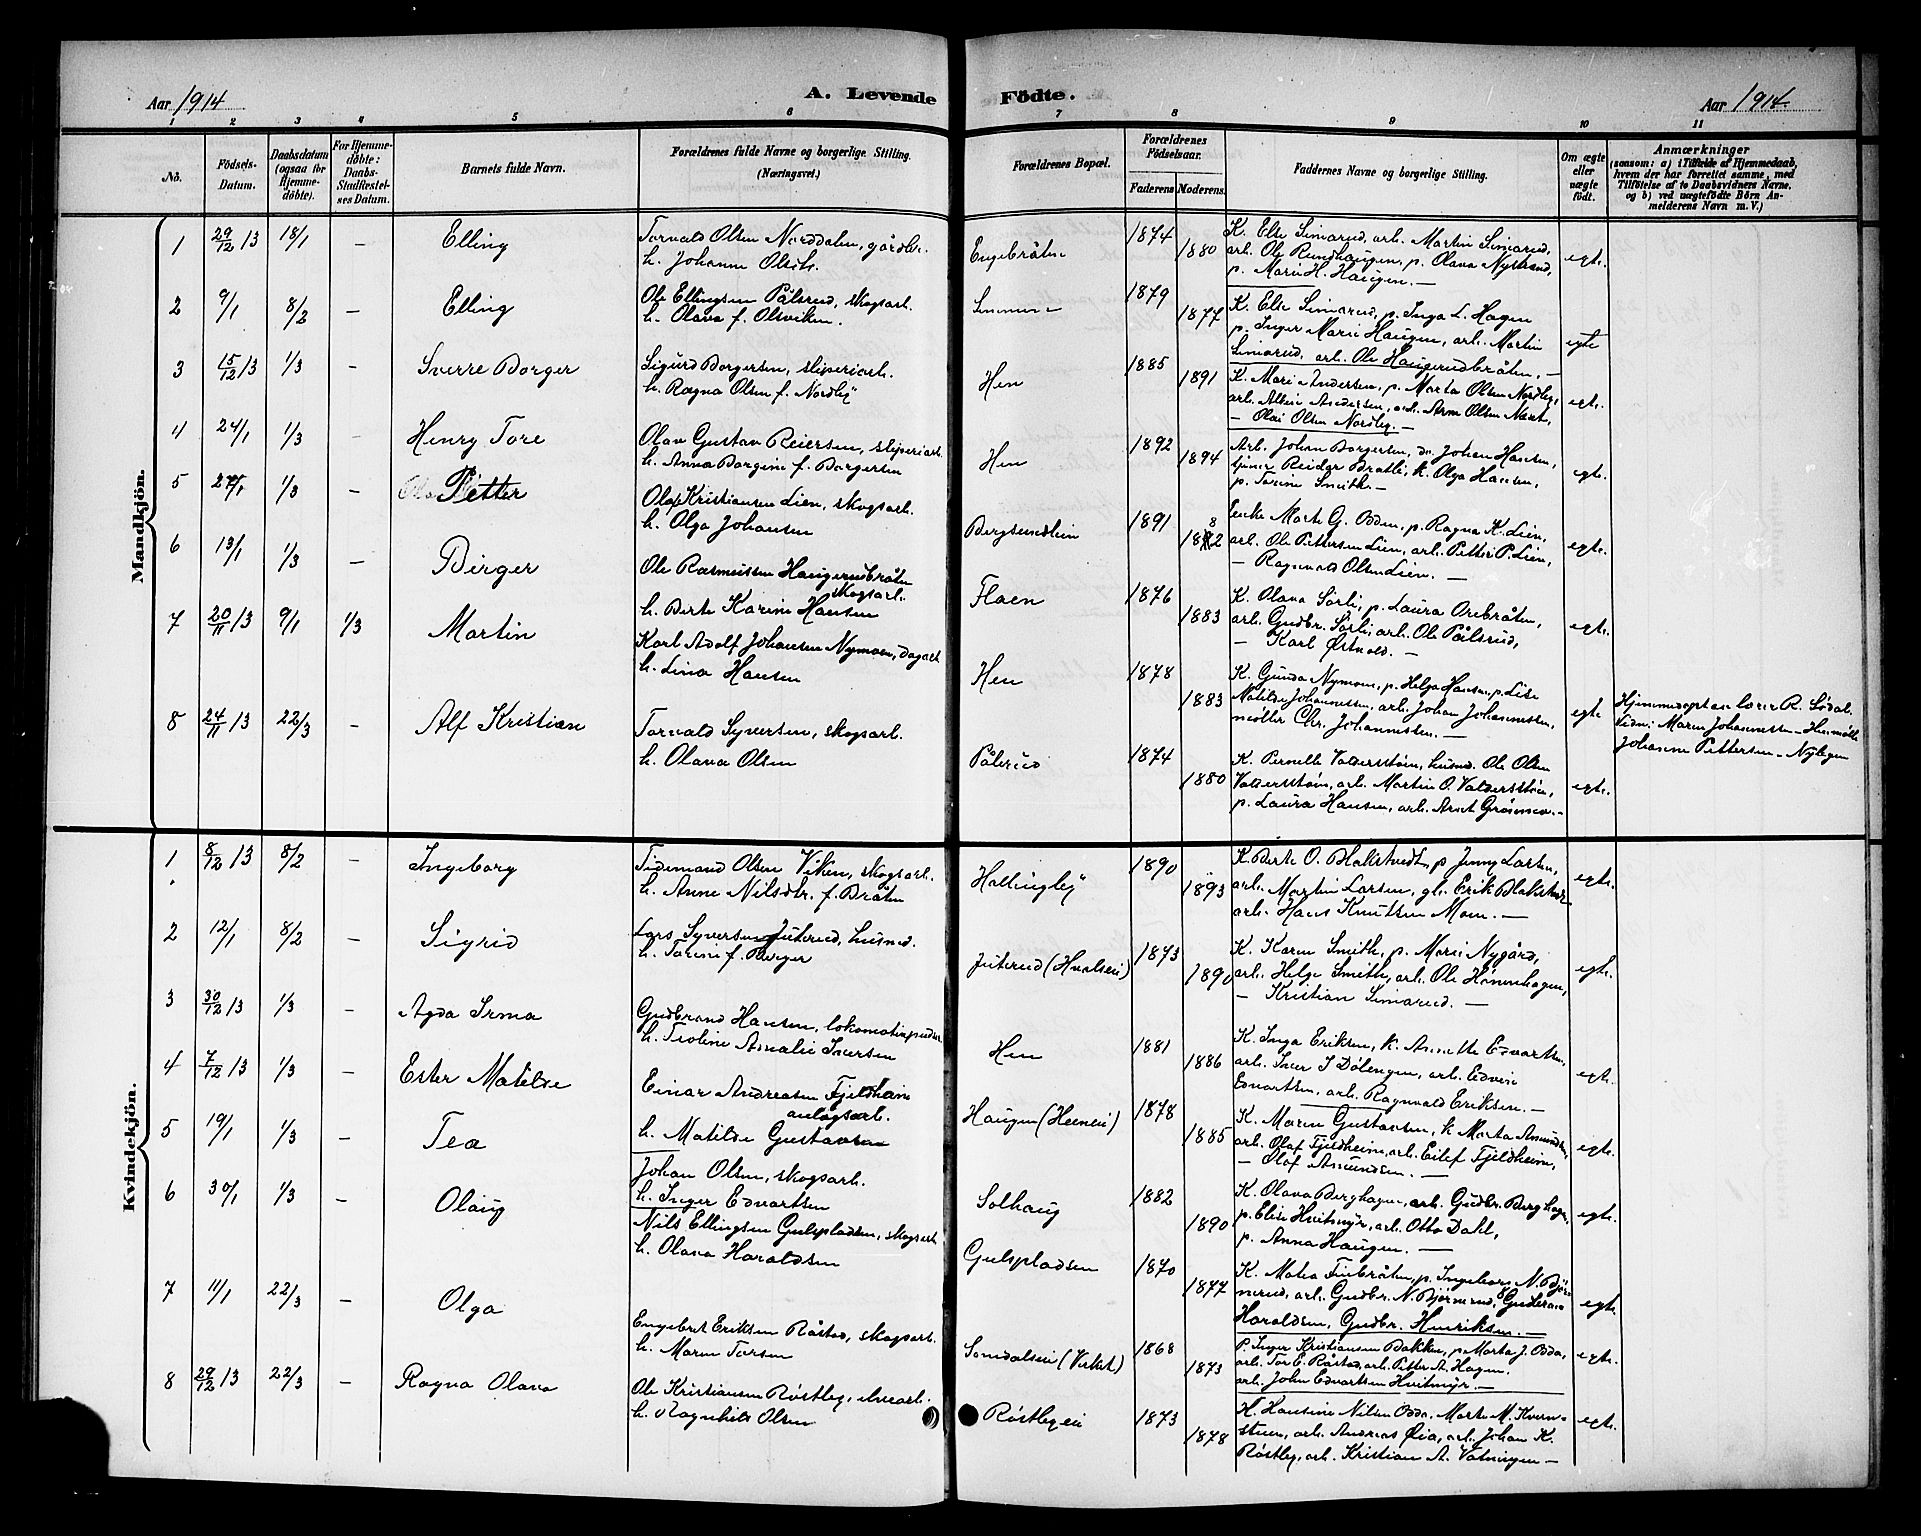 Aar 1914
A. Levende Födte.
Aar 1914
1 2 3 4 5 6 7 8 9 10 11
No.
Födsels-Datum.
Daabsdatum (ogsaa for Hjemme-döbte).
For Hjemme-döbte: Daabs-Stadfæstel-ses Datum.
Barnets fulde Navn.
Forældrenes fulde Navne og borgerlige Stilling.
(Næringsvei.)
Forældrenes Bopæl.
Forældrenes Födselsaar.
Faderens. Moderens.
Faddernes Navne og borgerlige Stilling.
Om ægte eller uægte födt.
Anmærkninger
(saasom: a) i Tilfælde af Hjemmedaab,
hvem der har forrettet samme, med
Tilföielse af to Daabsvidners Navne,
og b) ved uægtefödte Börn An-
melderens Navn m. V.)
Mandkjön.
1 29/12 13 18/1 – Elling
Torvald Olsen Norddalen, gårdbr.
h. Johanne Olsdtr.
Engebråten 1874 1880
K. Else Simarud, arb. Martin Simarud,
arb. Ole Rundhaugen, p. Olava Nystrand,
p. Marie H. Haugen. –
egte.
2 9/1 8/2 – Elling
Ole Ellingsen Pålsrud, skogsarb.
h. Olava f. Olsviken.
1879 1877
K. Else Simarud, p. Inga L. Hagen
p. Inger Marie Haugen, arb. Martin
Simarud, arb. Ole Haugerudbråten. –
egte
3 15/12 13 1/3 – Sverre Borger
Sigurd Borgersen, sliperiarb.
h. Ragna Olsen f. Nordby
Hen 1885 1891
K. Marie Andersen, p. Marta Olsen Nordby,
arb. Alfein Andersen, arb. Arne Olsen Næset,
– Olai Olsen Nordby. –
egte.
4 24/1 1/3 – Henry Tore
Olav Gustav Reiersen, sliperiarb.
h. Anna Borgine f. Borgersen
Hen 1892 1894
Arb. Johan Borgersen, do. Johan Hansen,
tjener Reidar Bratli, k. Olga Hansen,
p. Torine Smith. –
egte.
5 24/1 1/3 – Petter
Olaf Kristiansen Lien, skogsarb.
h. Olga Johansen
Bergsundlien 1891 1882
Enke Marte G. Odden, p. Ragna K. Lien,
arb. Ole Pettersen Lien, arb. Petter P. Lien,
– Ragnvald Olsen Lien. –
egte.
6 13/1 1/3 – Birger
Ole Rasmussen Haugerudbråten
skogsarb.
h. Berte Karine Hansen
Flaen 1876 1883
K. Olava Sörli, p. Laura Orebråten,
arb. Gudbr. Sörli, arb. Ole Pålsrud,
– Karl Østvold. –
egte.
7 20/11 13 9/1 1/3 Martin
Karl Adolf Johansen Nymoen, dagarb.
h. Lina Hansen
Hen 1878 1883
K. Gunda Nymoen, p. Helga Hansen, p. Lise
Matilde Johannessen, arb. Johan Johannessen,
möller Chr. Johannessen. –
egte
Hjemmedöpt av lærer R. Sødal.
Vidn: Maren Johannessen – Henmölle
Johanne Pettersen – Nylegen
8 24/11 13 22/3 – Alf Kristian
Torvald Syversen, skogsarb.
h. Olava Olsen
Pålsrud 1874 1880
K. Pernelle Valdersstøin, husmd. Ole Olsen
Valdersstøin, arb. Martin O. Valdersstøin,
p. Laura Hansen, arb. Arnt Grönmoen. –
egte.
Kvindekjön.
1 8/12 13 8/2 – Ingeborg
Tidemand Olsen Viken, skogsarb.
h. Anne Nilsdtr. f. Bråten
Hallingby 1890 1893
K Berte O. Blakstvedt, p. Jenny Larsen,
arb. Martin Larsen, gb. Erik Blakstved
arb. Hans Knutsen Moen. –
egte.
2 12/1 8/2 – Sigrid
Lars Syversen Juterud, husmd.
h. Torine f. Berger
Juterud (Hvalseie) 1873 1890
K. Karen Smith, p. Marie Nygård,
arb. Helge Smith, arb. Ole Hönenhagen,
– Kristian Simarud. –
egte.
3 30/12 13 1/3 – Agda Irma
Gudbrand Hansen, lokomotivpudser
h. Teoline Amalie Iversen
Hen 1881 1886
K. Inga Eriksen, k. Annette Edvartsen,
arb. Iver I Dölengen, arb. Edvin
Edvartsen, arb. Ragnvald Eriksen. –
egte.
4 7/12 13 1/3 – Ester Matilde
Einar Andreasen Fjeldheim
anlægsarb.
h. Matilde Gustavsen
Haugen (Heneeie) 1878 1885
K. Maren Gustavsen, k. Marta Amundsen,
arb. Olaf Fjeldheim, arb. Eilef Fjeldheim,
– Olaf Amundsen. –
egte.
5 19/1 1/3 – Tea
Johan Olsen, skogsarb.
h. Inger Edvartsen
Solhaug 1882 1890
K. Olava Berghagen, arb. Gudbr. Berghagen,
p. Elise Hvitmyr, arb. Otto Dahl,
p. Anna Haugen. –
egte.
6 30/1 1/3 – Olaug
Nils Ellingsen Gulspladsen, skogsarb.
h. Olava Haraldsen
Gulspladsen 1870 1877
K. Matea Finbråten, p. Ingeborg N. Bjør-
nerud, arb. Gudbr. N. Bjørnerud, Gudbran
Haraldsen, Gudbr. Henriksen. –
egte.
7 11/1 22/3 – Olga
Engebret Eriksen Råstad, skogsarb.
h. Maren Torsen
Somdalseie (Viket) 1868 1873
P. Inger Kristiansen Bakken, p. Marta J. Odda,
arb. Tor E. Råstad, arb. Petter A. Hagen.
arb. John Edvartsen Hvitmyr. –
egte.
8 29/12 13 22/3 – Ragna Olava
Ole Kristiansen Røstbeg, elvearb.
h. Ragnhild Olsen
Røstbegeie 1873 1878
K. Hansine Nilsen Odda, Marte M. Kvern-
stuen, arb. Andreas Øia, arb. Johan K.
Røstbeg, arb. Kristian A. Vatningen –
egte.